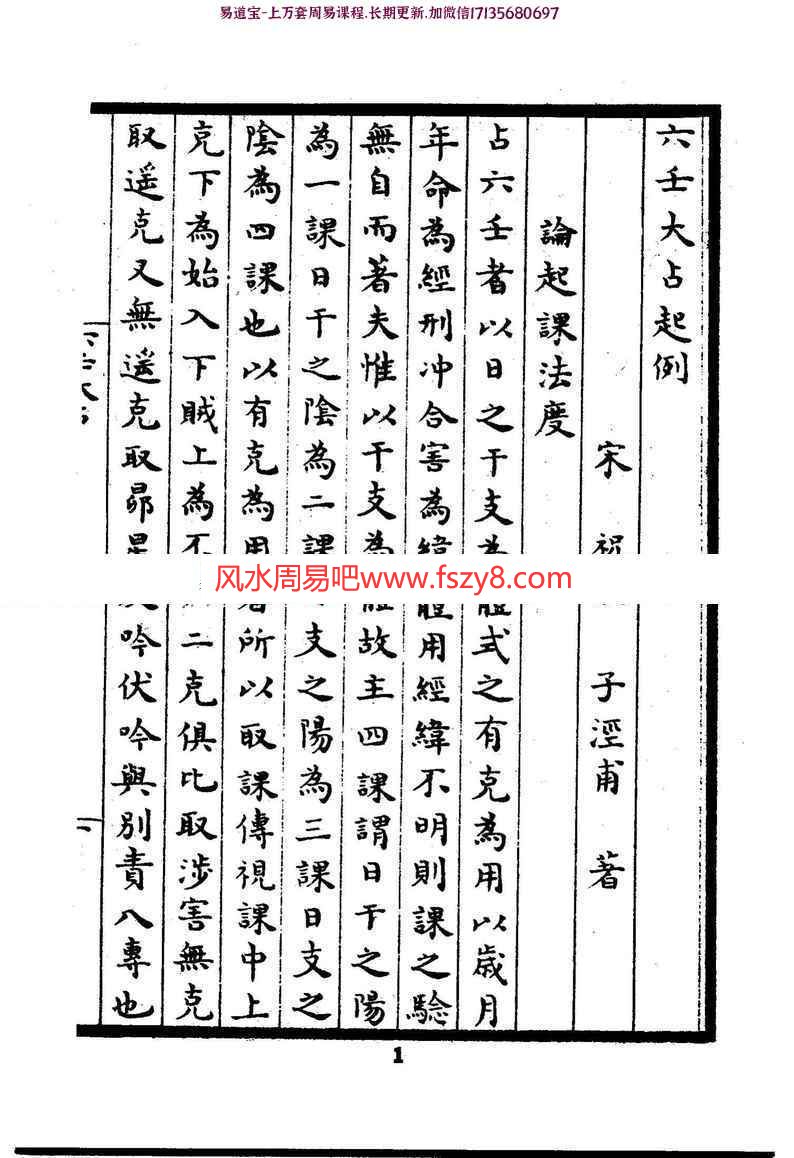 易道宝-上万套周易课程.长期更新.加微信17135680697
六壬大占起例
宋 祝 子涇甫 著
論起課法度
占六壬者以日之干支為體式之有克為用以歲月
年命為經刑冲合害為緯體用經緯不明則課之驗
無自而著夫惟以干支為體故主四課謂日干之陽
為一課日干之陰為二課 支之陽為三課日支之
陰為四課也以有克為用 所以取課傳視課中上
克下為始入下賊上為 二克俱比取涉害無克
取遥克又無遥克取昴星 吟伏吟與別責八專也
风水周易吧www.fszy8.com
1